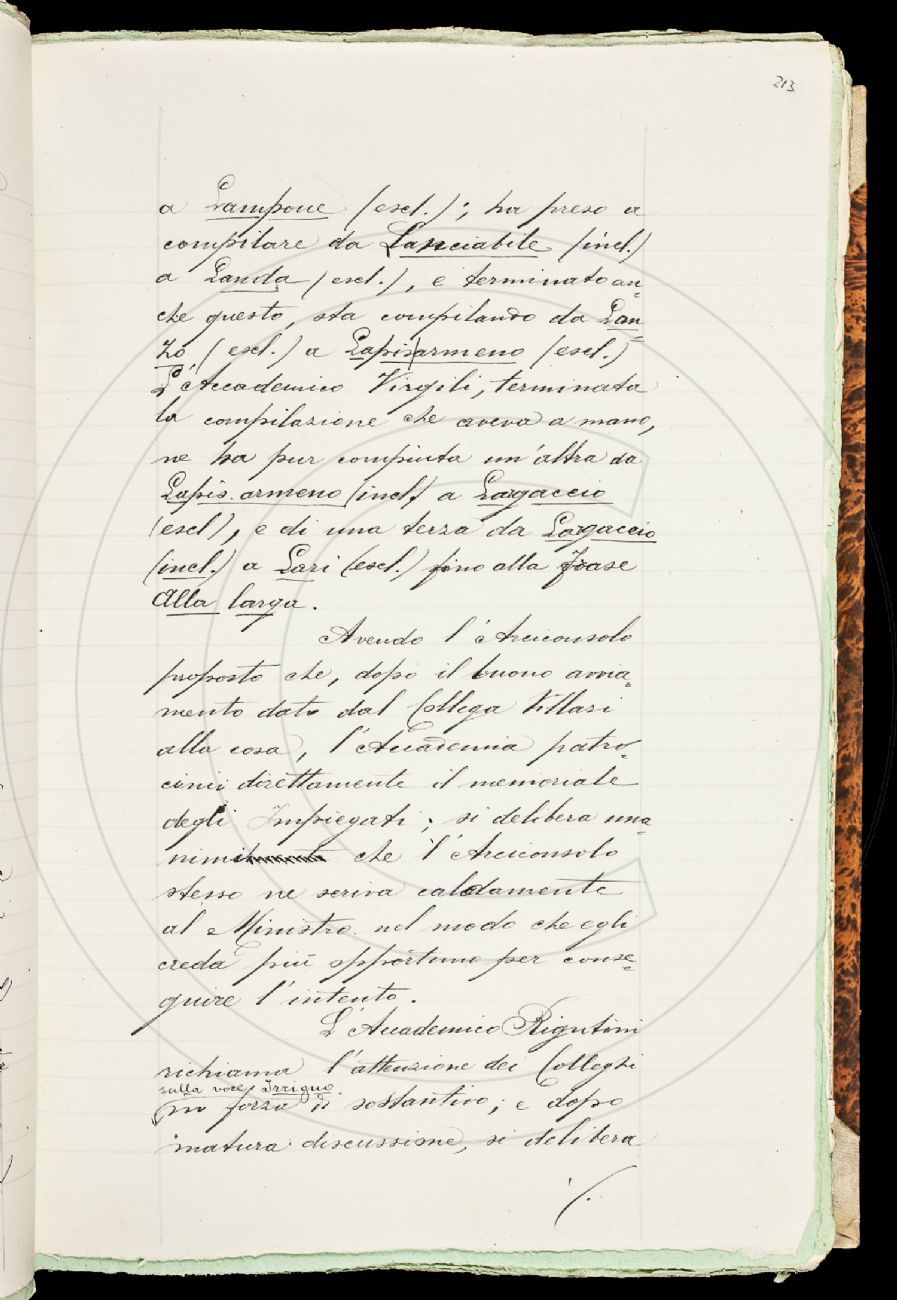 213
a Lampone (escl.); ha preso a
compilare da Lanciabile (incl.)
a Landa (escl.), e terminato an=
che questo, sta compilando da Lan=
zo, (escl.) a Lapis armeno (escl.)
L'Accademico Virgili, terminata
la compilazione che aveva a mano,
ne ha pur compiuta un'altra da
Lapis armeno (incl.) a Largaccio
(escl.), e di una terza da Largaccio
(incl.) a Lari (escl.) fino alla frase
Alla larga.
Avendo l'Arciconsolo
proposto che, dopo il buono avvia=
mento dato dal Collega Villari
alla cosa, l'Accademia patro-
cinii direttamente il memoriale
degli Impiegati; si delibera una=
nimi che l'Arciconsolo
stesso ne scriva caldamente
al Ministro nel modo che egli
creda più opportuno per conse=
guire l'intento.
L'Accademico Rigutini
richiama l'attenzione dei Colleghi
sulla voce Irriguo
in forza di sostantivo; e dopo
matura discussione, si delibera
./.